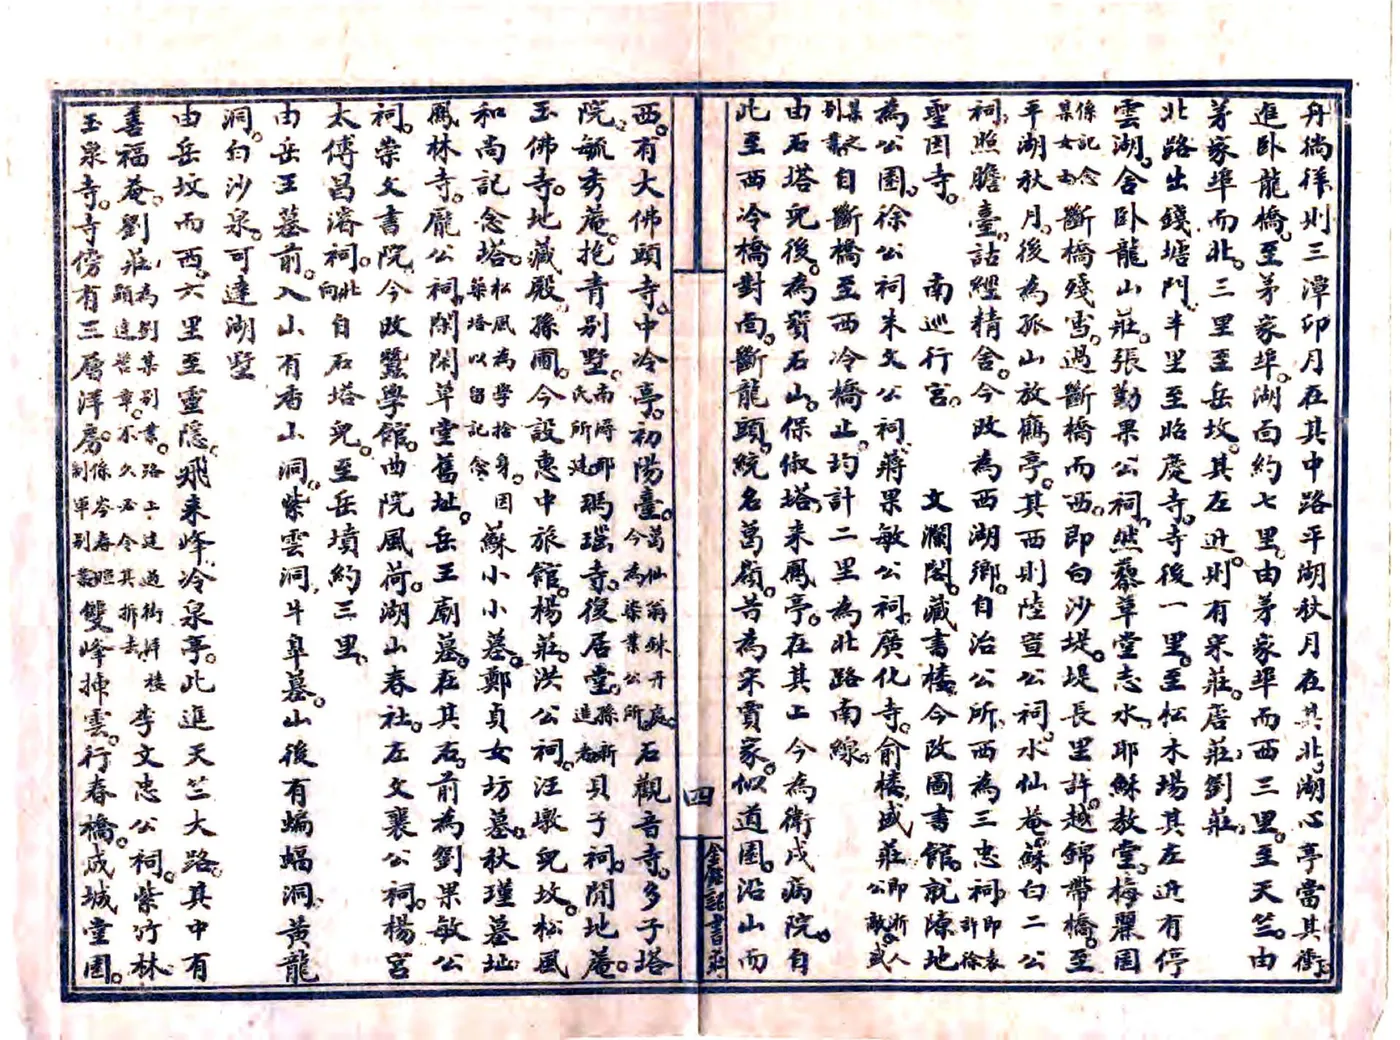 丹徜徉則三潭印月在其中路平湖秋月在其北湖心亭當其衝
進卧龍橋。至茅家埠。湖面約七里。由茅家埠而西三里。至天竺。由
茅家埠而北。三里至岳坟。其左近。則有宋莊。唐莊。劉莊。
北路出錢塘門。半里至昭慶寺。寺後一里。至松木場其左近有停
雲湖。舍卧龍山莊。張勤果公祠。然藜草堂志水。耶穌教堂。梅麗園
係記念某女士斷橋殘雪。過斷橋而西。即白沙堤。堤長里許。越錦帶橋。至
平湖秋月。後為孤山放鶴亭。其西則陸宣公祠。水仙庵。蘇白二公
祠。照膽臺。詁經精舍。今改為西湖鄉。自治公所。西為三忠祠。即袁許徐
聖因寺。 南巡行宮。 文瀾閣。藏書樓。今改圖書館。就隙地
為公園。徐公祠朱文公祠。蔣果敏公祠。廣化寺。俞樓。盛莊即浙人公盛
某之別業自斷橋至西冷橋止。約計二里為北路南線。
由石塔兒後。為寶石山。保俶塔。来鳳亭。在其上今為衛戍病院。自
此至西冷橋對面。斷龍頭。統名葛嶺。昔為宋賈家。似道園。沿山而
四
西。有大佛頭寺。中冷亭。初陽臺。葛仙翁鍊丹處。今為業公所石觀音寺。多子塔
院。毓秀庵。抱青别墅。南潯邢氏所建瑪瑙寺。復居堂。孫新造貝子祠。閒地庵。
玉佛寺。地藏殿。孫圃。今設惠中旅館。楊莊。洪公祠。汪墩兒坟。松風
和尚記念塔。松風為學捨身。因築塔以留記念蘇小小墓。鄭貞女坊墓。秋瑾墓址。
鳳林寺。龐公祠。閑閑草堂舊址。岳王廟墓。在其右。前為劉果敏公
祠。崇文書院。今改蠶學館。曲院風荷。湖山春社。左文襄公祠。楊宮
太傅昌濬祠。北向自石塔兒。至岳墳約三里。
由岳王墓前。入山有香山洞。紫雲洞。牛皐墓。山後有蝙蝠洞。黃龍
洞。白沙泉。可達湖墅
由岳坟而西。六里至靈隱。飛来峰。冷泉亭。此進天竺大路。其中有
善福庵。劉莊。為劉某别業。路上建過街拜樓。李文忠公祠。紫竹林。
玉泉寺。寺傍有三層洋房。係岑春制軍别業雙峰插雲。行春橋。成城堂園。